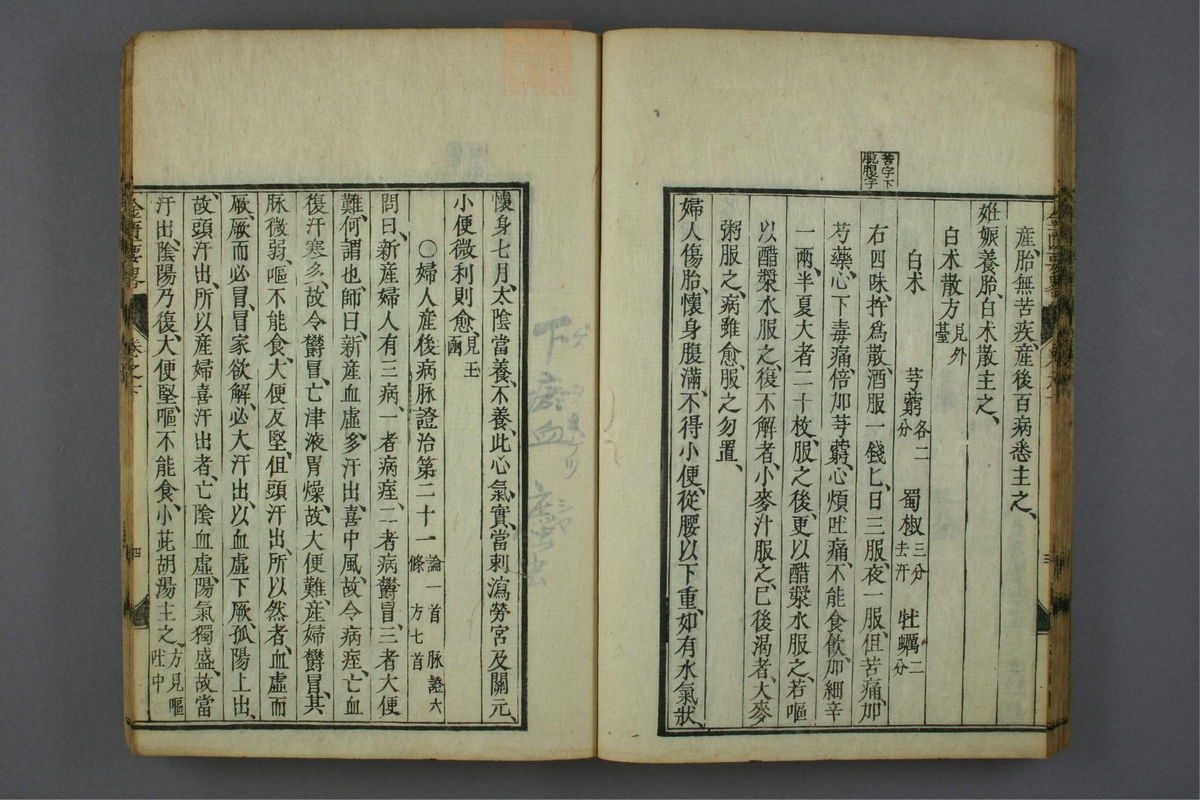 苦字下
脱腹字
産、胎無苦疾、産後百病悉主之、
妊娠養胎、白术散主之、
白术散方見外臺
白术 芎藭各二分 蜀椒三分去汗 牡蠣二分
右四味、杵爲散、酒服一錢匕、日三服、夜一服、但苦痛、加
芍藥、心下毒痛、倍加芎藭、心煩吐痛、不能食飲、加細辛
一兩、半夏大者二十枚、服之後更以醋漿水服之、若嘔
以醋漿水服之、復不解者、小麥汁服之、已後渴者、大麥
粥服之、病雖愈、服之勿置、
婦人傷胎、懷身腹滿、不得小便、從腰以下重、如有水氣狀、
懷身七月、太陰當養、不養、此心氣實、當刺瀉勞宮及關元、
小便微利則愈、見玉函
〇婦人産後病脉證治第二十一論一首 脉證六條 方七首
問曰、新産婦人有三病、一者病痙、二者病欝冒、三者大便
難、何謂也、師曰、新産血虛、多汗出、喜中風、故令病痙、亡血
復汗寒多、故令欝冒、亡津液胃燥、故大便難、産婦欝冒、其
脉微弱、嘔不能食、大便反堅、但頭汗出、所以然者、血虛而
厥、厥而必冒、冒家欲解、必大汗出、以血虛下厥、孤陽上出、
故頭汗出、所以産婦喜汗出者、亡陰血虛、陽氣獨盛、故當
汗出、陰陽乃復、大便堅、嘔不能食、小茈胡湯主之、方見嘔吐中
金匱要畧 卷之下 四
下瘀血 䗪虫